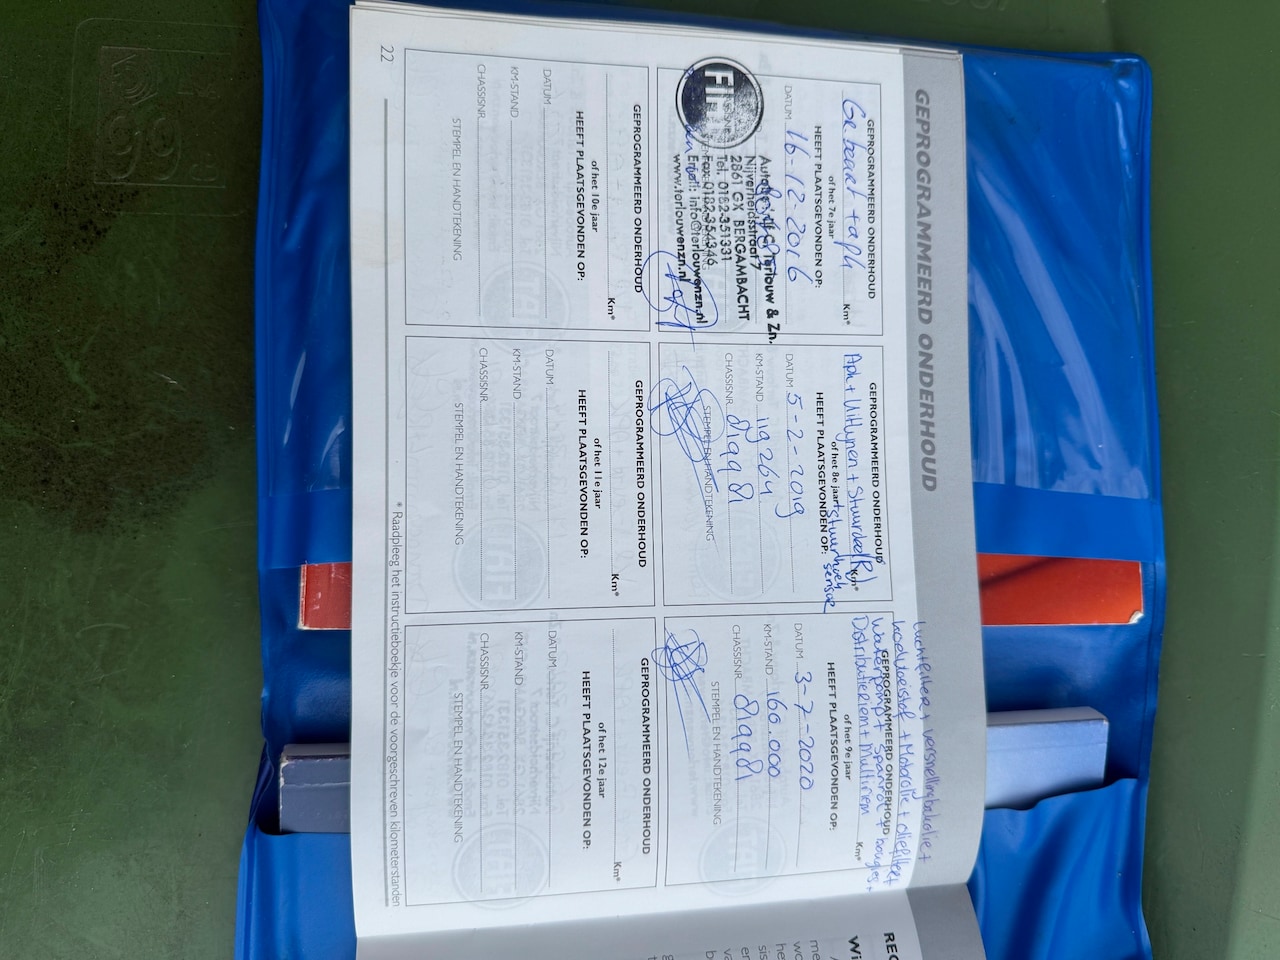 GEPROGRAMMEERD ONDERHOUD
GEPROGRAMMEERD ONDERHOUD
of het 7e jaar
Km*
HEEFT PLAATSGEVONDEN OP:
DATUM 16-12-2016
Terlouw & Zn.
Nijverheidsstraat 7
2861 GX BERGAMBACHT
Tel. 0182-351331
Fax: 0182-354346
Email: info@terlouwenzn.nl
www.terlouwenzn.nl
Aph + Uitlijnen + Stuurdeel(R)
stuurhoek
sensor
GEPROGRAMMEERD ONDERHOUD
of het 8e jaar
Km*
HEEFT PLAATSGEVONDEN OP:
DATUM 5-2-2019
KM-STAND 119264
CHASSISNR. 819981
STEMPEL EN HANDTEKENING
Luchtfilter + versnellingsbakolie +
koelvloeistof + Motorolie + oliefilter +
Waterpomp + Spanrol + bougies +
Distributieriem + Multiriem
GEPROGRAMMEERD ONDERHOUD
of het 9e jaar
Km*
HEEFT PLAATSGEVONDEN OP:
DATUM 3-7-2020
KM-STAND 160.000
CHASSISNR. 819981
STEMPEL EN HANDTEKENING
GEPROGRAMMEERD ONDERHOUD
Km*
of het 10e jaar
HEEFT PLAATSGEVONDEN OP:
DATUM
KM-STAND
CHASSISNR.
STEMPEL EN HANDTEKENING
GEPROGRAMMEERD ONDERHOUD
Km*
of het 11e jaar
HEEFT PLAATSGEVONDEN OP:
DATUM
KM-STAND
CHASSISNR.
STEMPEL EN HANDTEKENING
GEPROGRAMMEERD ONDERHOUD
Km*
of het 12e jaar
HEEFT PLAATSGEVONDEN OP:
DATUM
KM-STAND
CHASSISNR.
STEMPEL EN HANDTEKENING
* Raadpleeg het instructieboekje voor de voorgeschreven kilometerstanden
22